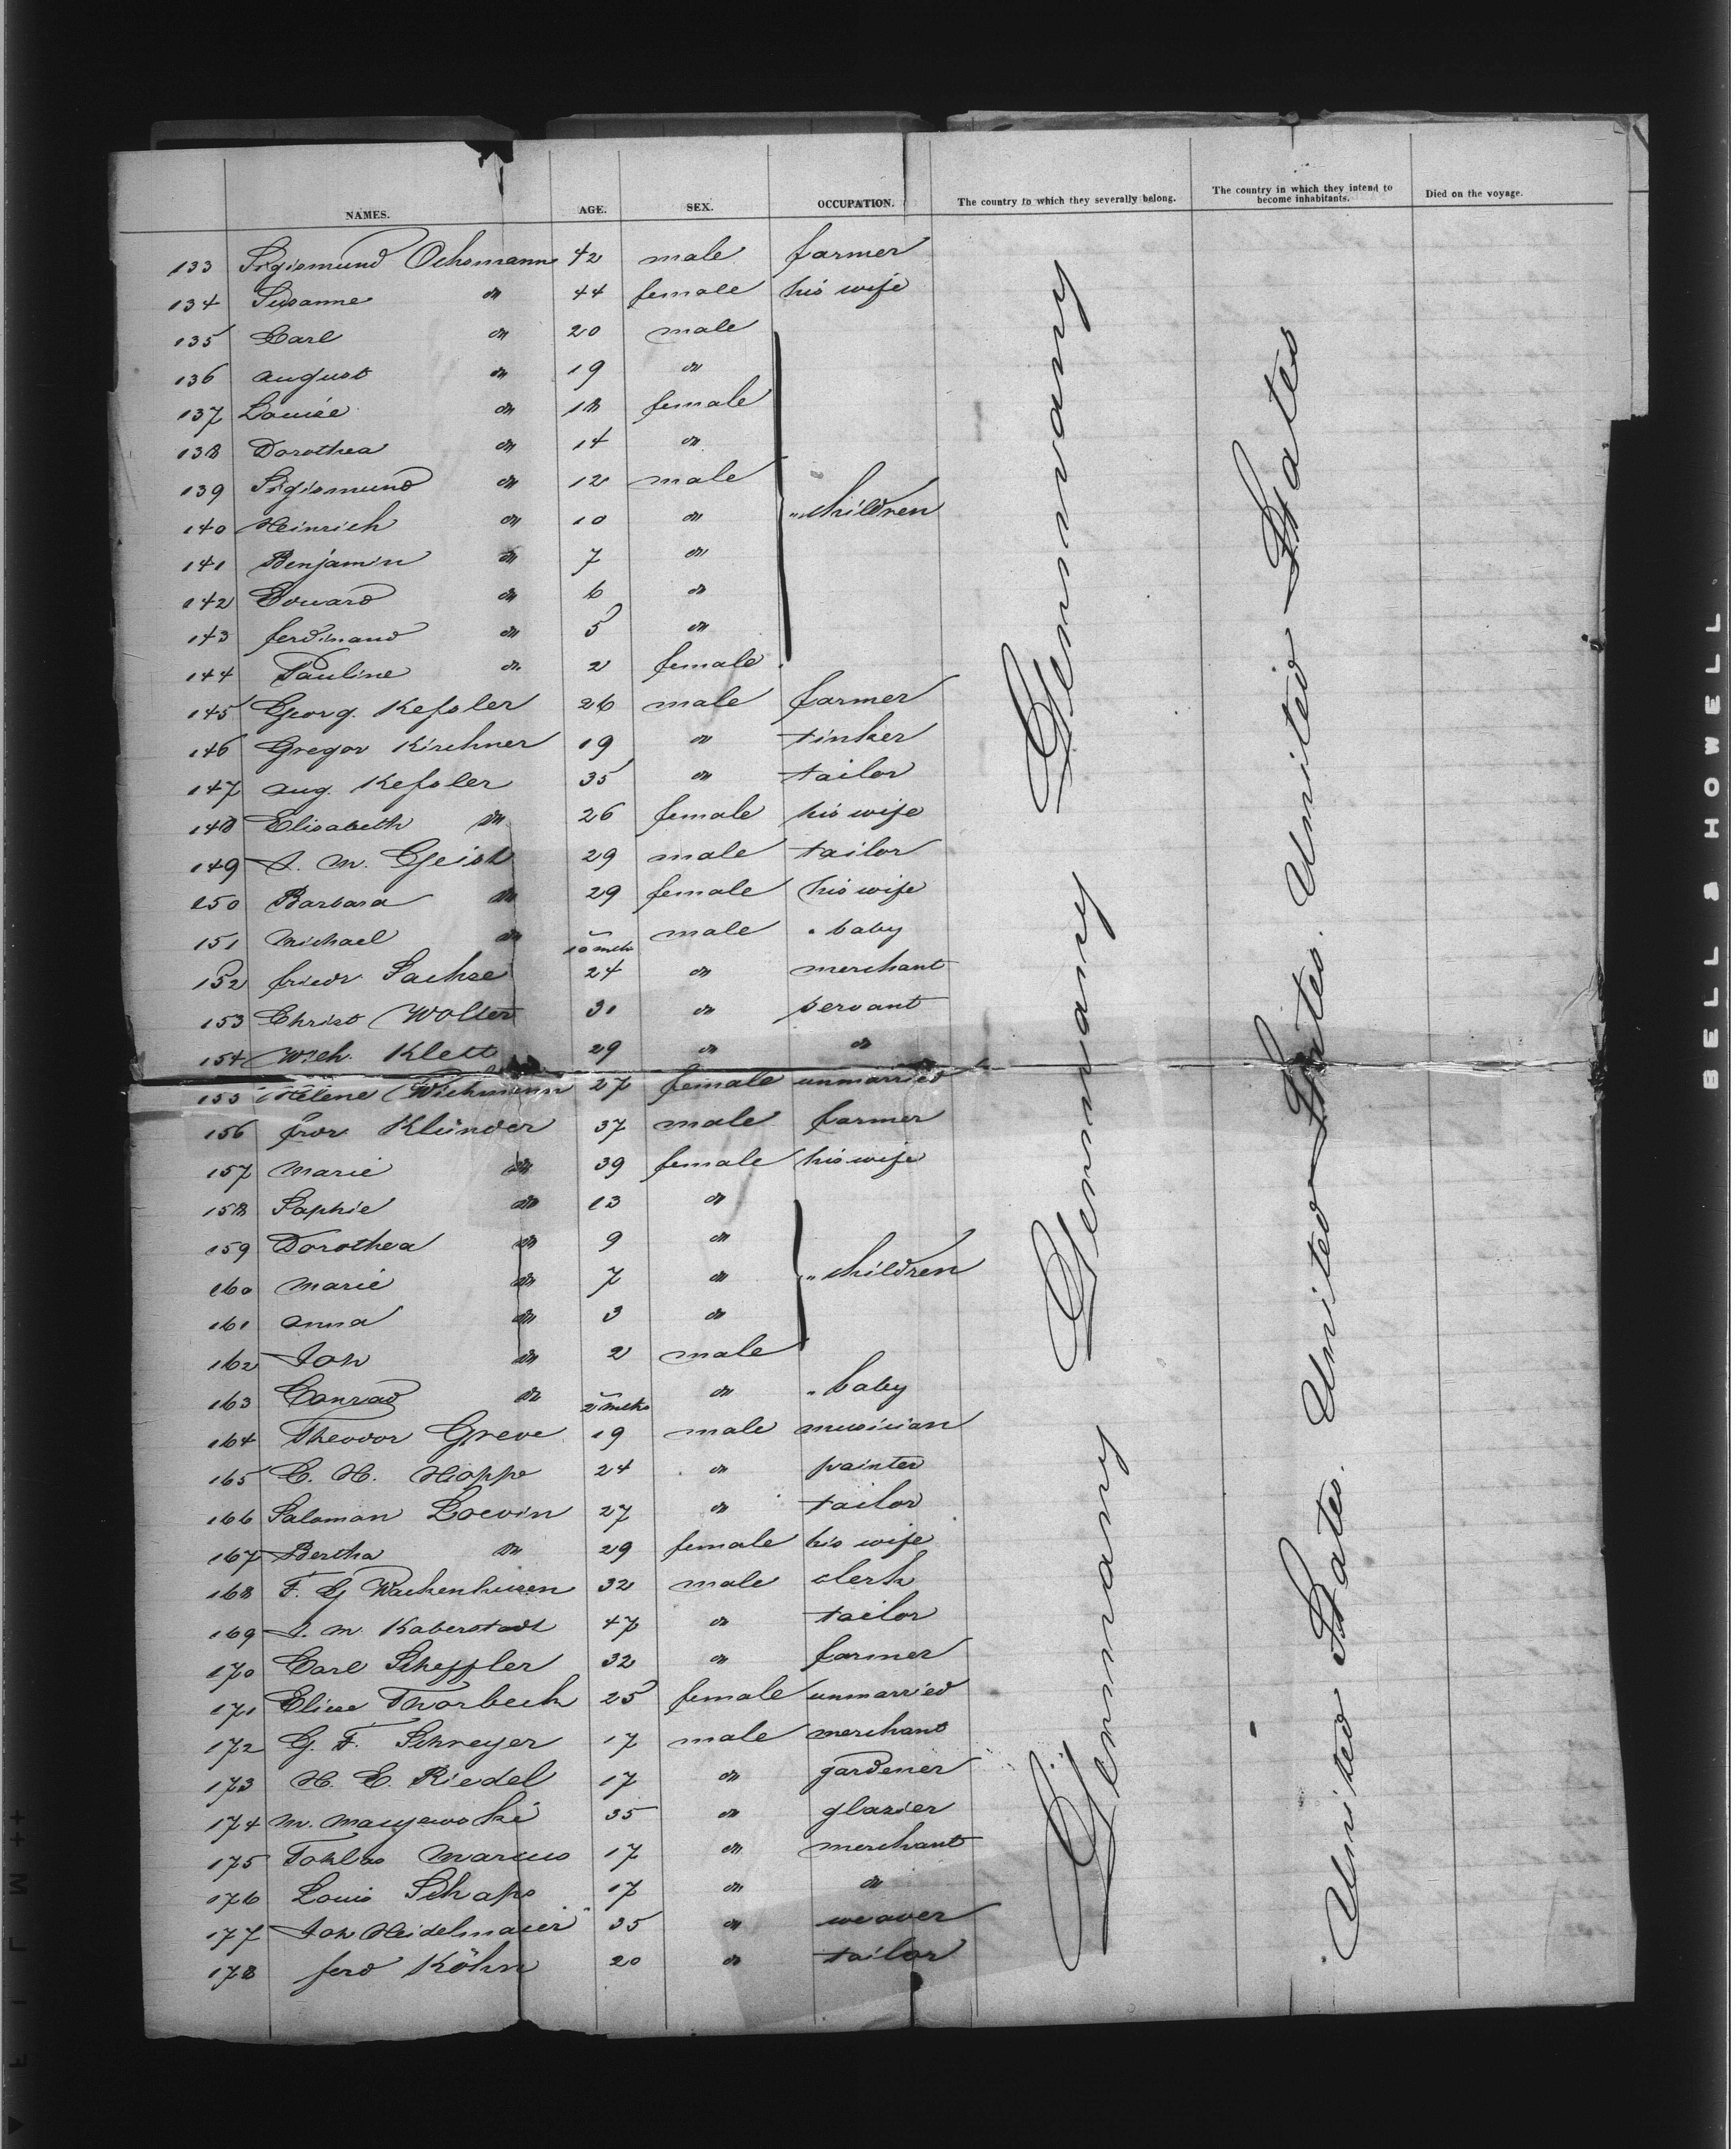 NAMES. AGE. SEX. OCCUPATION. The country to which they severally belong. The country in which they intend to become inhabitants. Died on the voyage.
133 Sigismund Ochsmann 42 male farmer
134 Susanne do 44 female his wife
135 Carl do 20 male
136 August do 19 do
137 Louise do 18 female
138 Dorothea do 14 do
139 Sigismund do 12 male
140 Heinrich do 10 do " children
141 Benjamin do 7 do
142 Edward do 6 do
143 Ferdinand do 5 do
144 Pauline do 2 female
145 Georg. Kessler 26 male farmer
146 Gregor Kirchner 19 do tinker
147 Aug. Kessler 35 do tailor
148 Elisabeth do 26 female his wife
149 J. M. Geist 29 male tailor
150 Barbara do 29 female his wife
151 Michael do 10 mths male " baby
152 Friedr Sachse 24 do merchant
153 Christ Wolter 31 do servant
154 Mich. Klett 29 do do
155 Helene Wichmann 27 female unmarried
156 Frdr Klünder 37 male farmer
157 Marie do 39 female his wife
158 Sophie do 13 do
159 Dorothea do 9 do
160 Marie do 7 do " children
161 Anna do 3 do
162 Joh do 2 male
163 Conrad do 2 mths do " baby
164 Theodor Greve 19 male musician
165 C. H. Hoppe 24 do painter
166 Salomon Loevin 27 do tailor
167 Bertha do 29 female his wife
168 F. G Wackenhusen 32 male clerk
169 J. M. Kaberstadt 47 do tailor
170 Carl Scheffler 32 do farmer
171 Elise Thorbeck 25 female unmarried
172 G. F. Schreyer 17 male merchant
173 H. E. Riedel 17 do gardener
174 M. Mayewski 35 do glazier
175 Marcus 17 do merchant
176 Louis Schaps 17 do do
177 Joh Heidelmaier 35 do weaver
178 Ferd Köhn 20 do tailor
Germany Germany Germany Germany
United States. United States. United States. United States
BELL & HOWELL
FILM ++